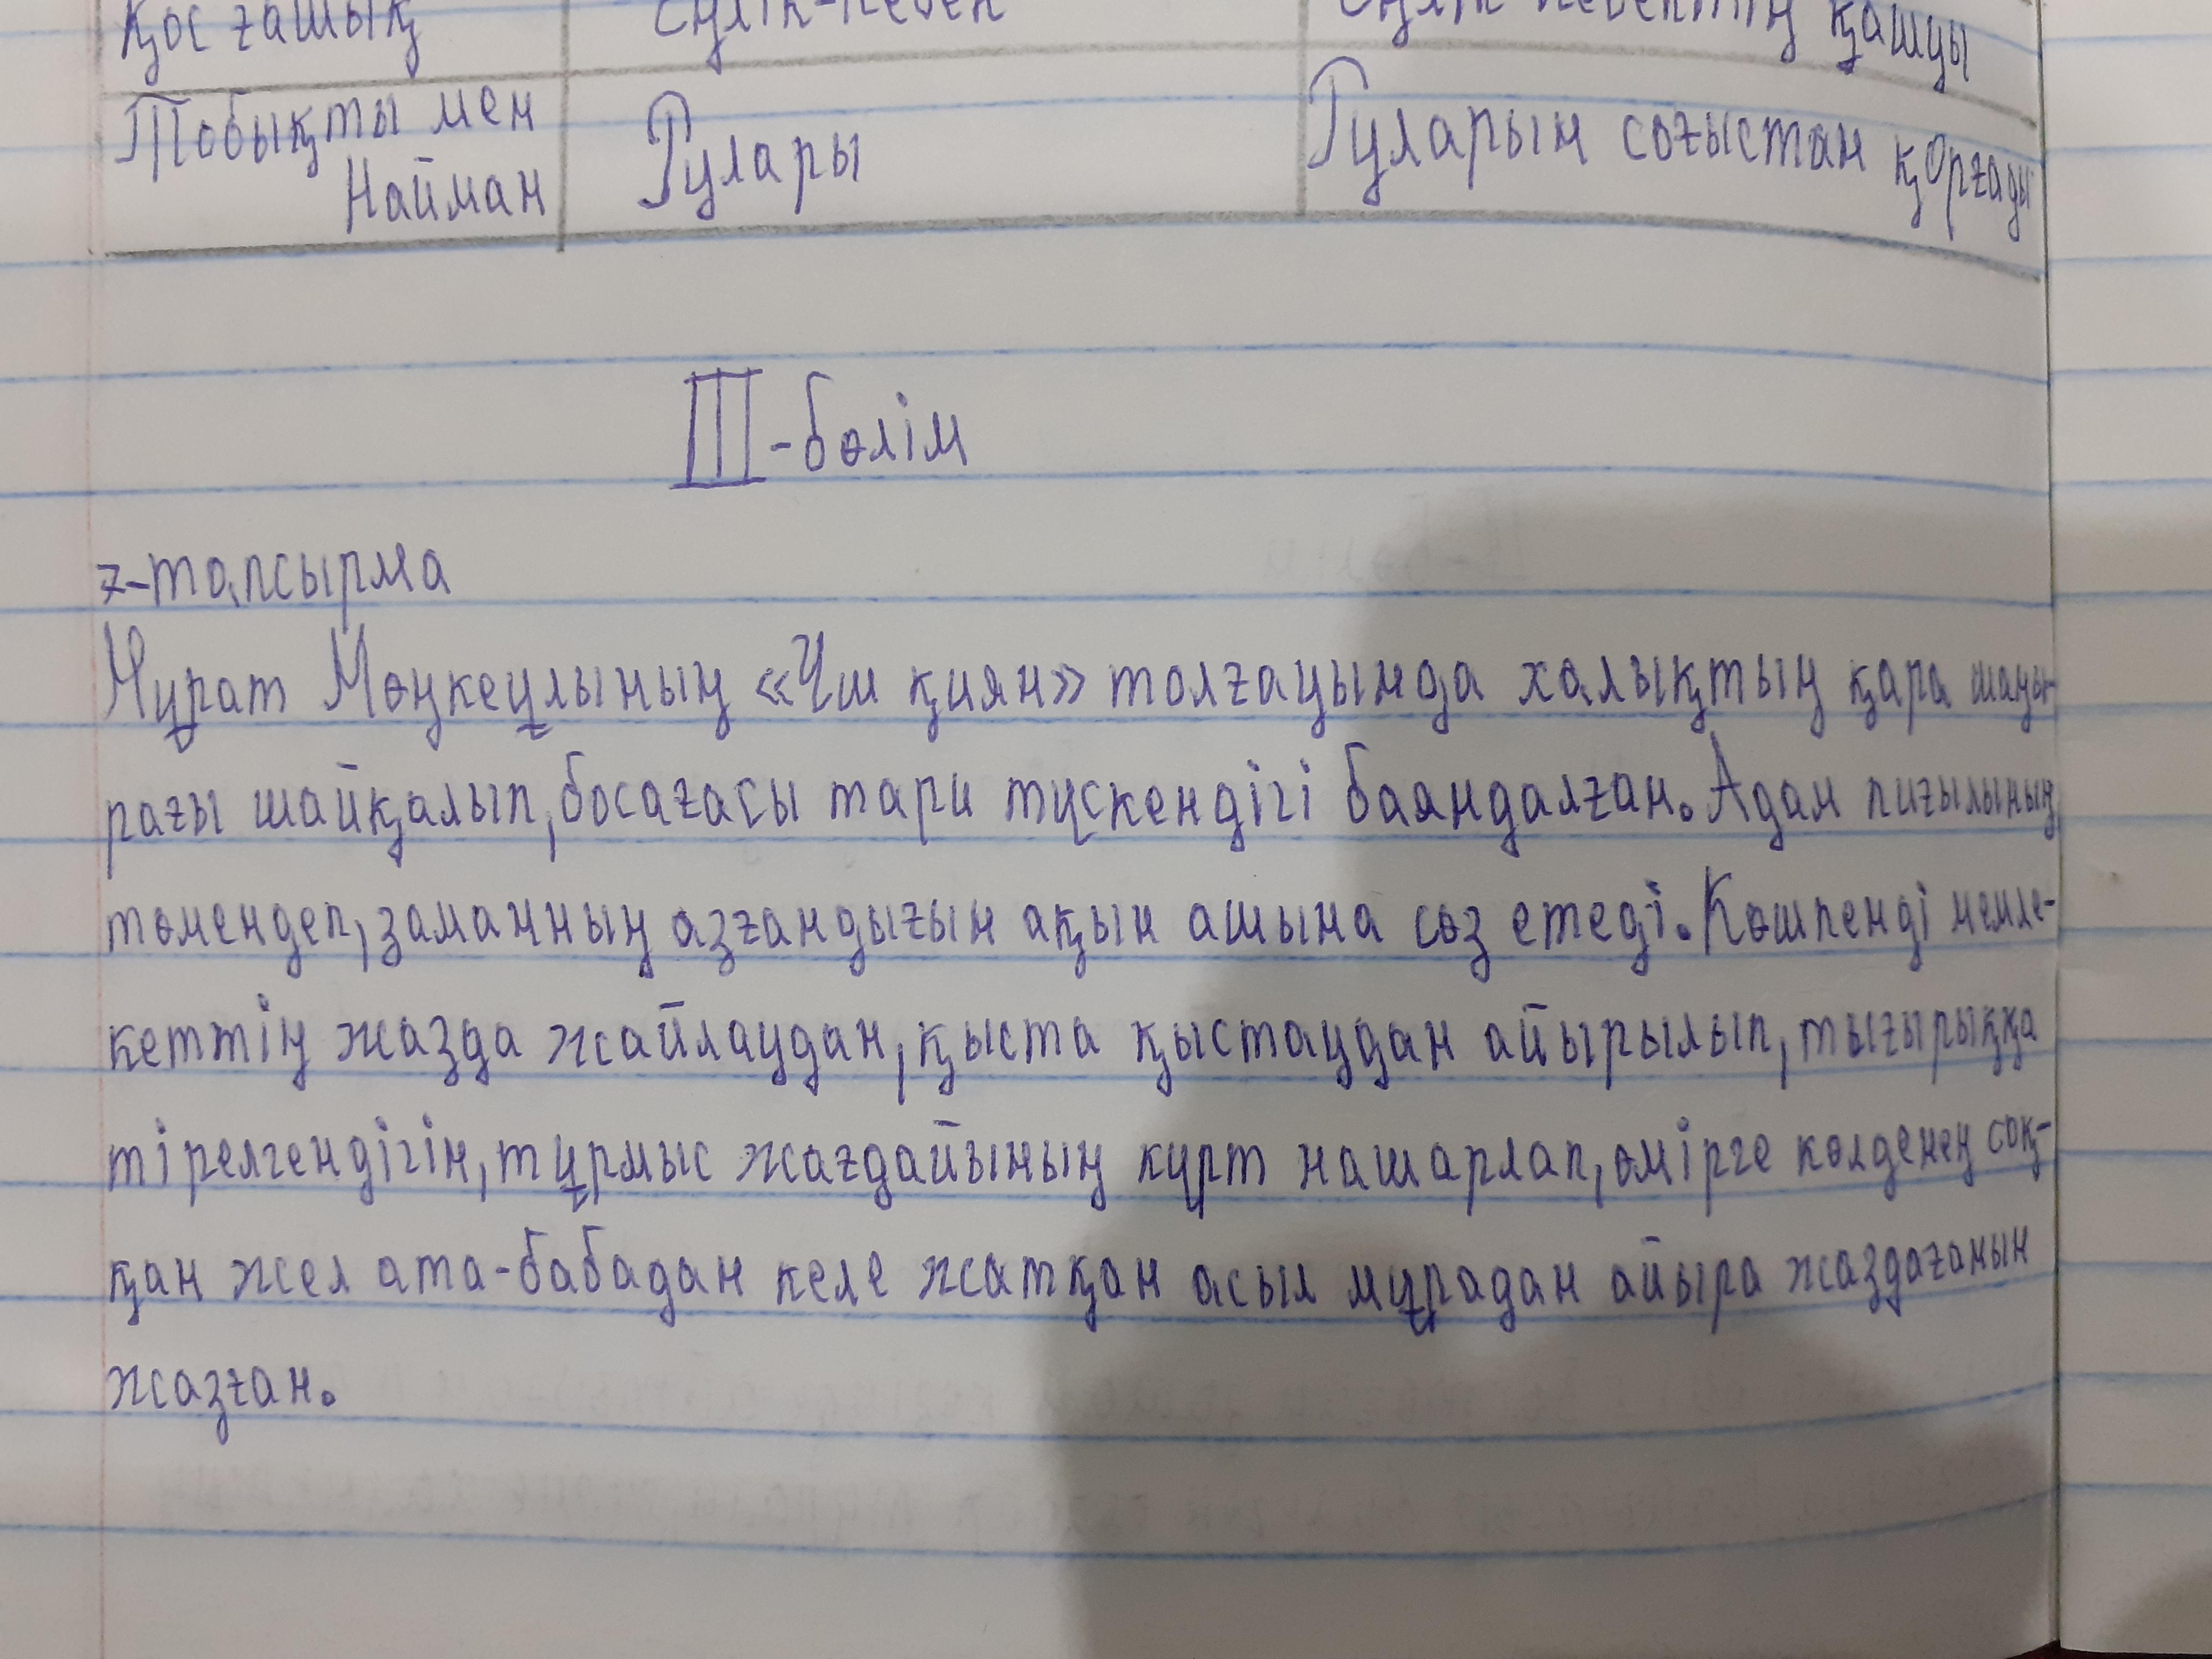 Қос ғашық Еңлік-Кебек Еңлік Кебектің қашуы
Тобықты мен Рулары Руларын соғыстан қорғады
Найман
III-бөлім
7-тапсырма
Мұрат Мөңкеұлының «Үш қиян» толғауында халықтың қара шаңы-
рағы шайқалып, босағасы тари түскендігі баяндалған. Адам пиғылының
төмендеп, заманның азғандығын ақын ашына сөз етеді. Көшпенді мемле-
кеттің жазда жайлаудан, қыста қыстаудан айырылып, тығырыққа
тірелгендігін, тұрмыс жағдайының күрт нашарлап, өмірге көлденең соқ-
қан жел ата-бабадан келе жатқан асыл мұрадан айыра жаздағанын
жазған.